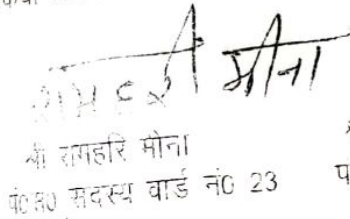 रामहरी मीना
श्री रामहरि मीना
पं०स० सदस्य वार्ड नं0 23